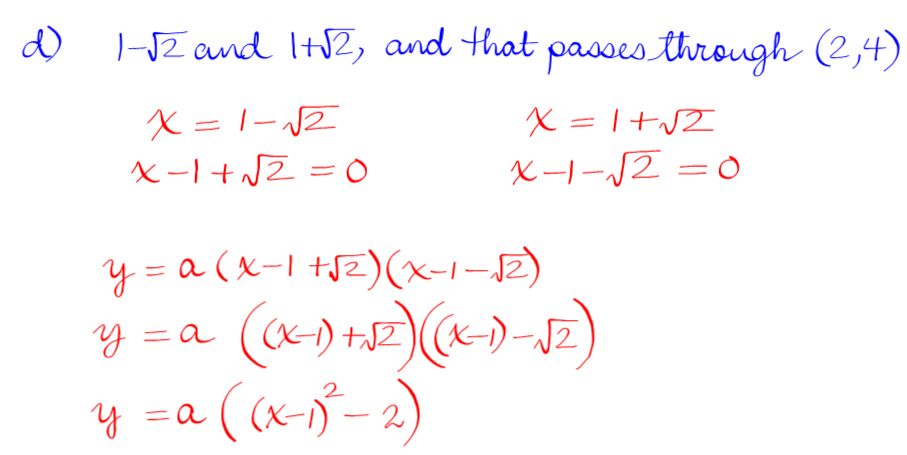 d) 1-√2 and 1+√2, and that passes through (2,4)
x = 1-√2 x = 1+√2
x-1+√2 = 0 x-1-√2 = 0
y = a(x-1+√2)(x-1-√2)
y = a ((x-1)+√2)((x-1)-√2)
y = a((x-1)²-2)